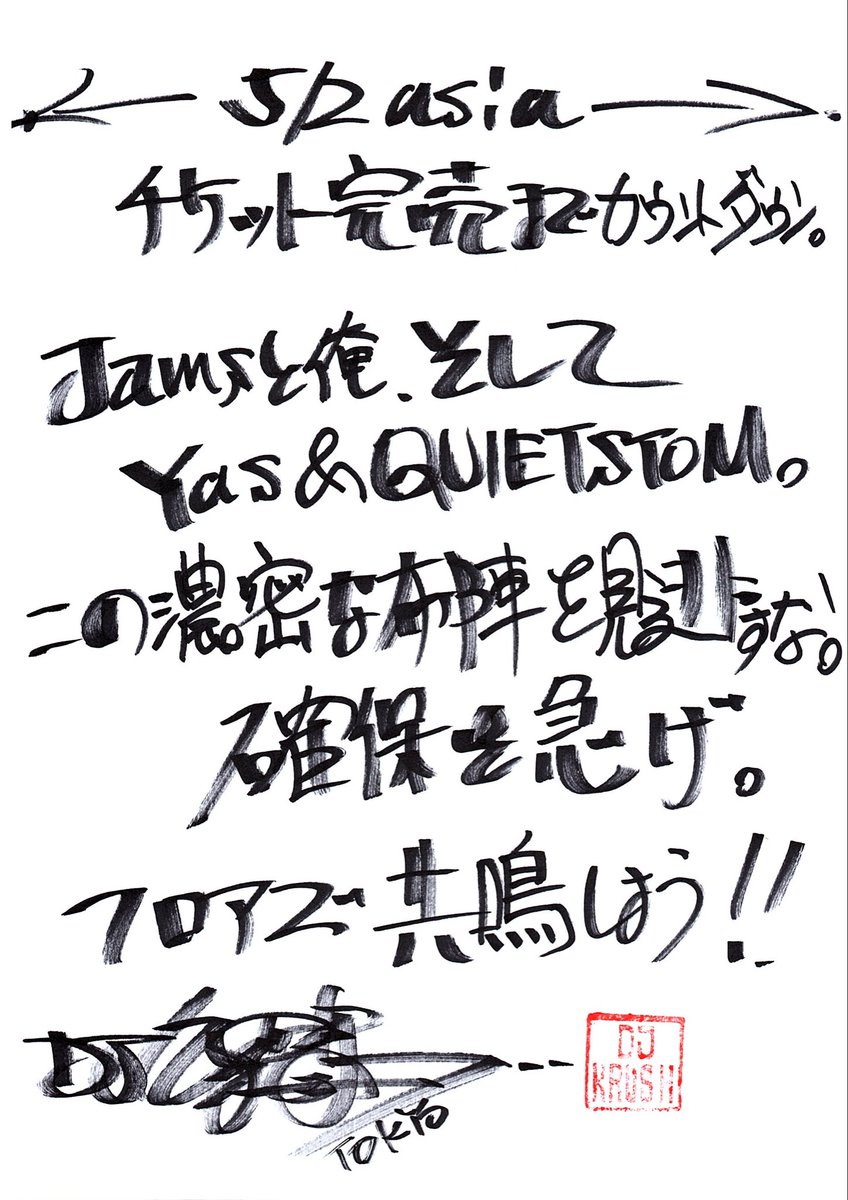 5/2 asia
チケット完売までカウントダウン。
Jamsと俺、そして
Yas&QUIETSTOM。
この濃密な布陣を見逃すな!。
確保を急げ。
フロアで共鳴しよう!!
DJ
TOKYO
DJ
KRUSH